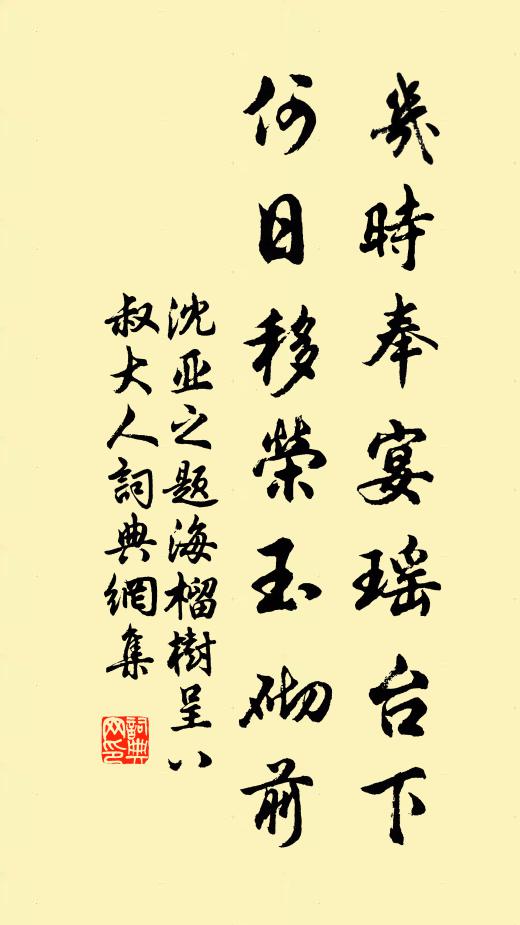 幾時奉宴瑶台下
何日移榮玉砌前
沈亚之题海榴樹呈八
叔大人詞典網集
詞典网印